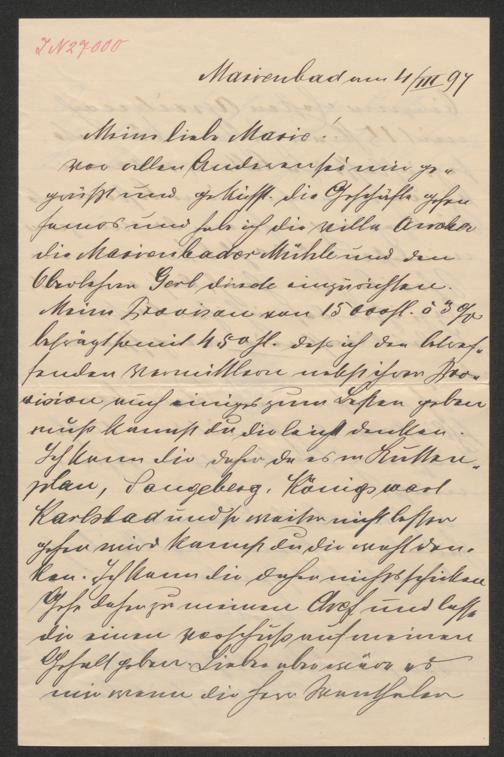 IN 27000
Marienbad am 4/III 97
Meine liebe Marie!
vor allen Anderen sei mir ge-
grüßt und geküsst. die Geschäfte gehen
famos und habe ich die Villa
die Marienbader Mühle und den
Oberlehrer Gerl einzurichten.
Meine Provision von 15000 fl. à 3 %
beträgt somit 450 fl. daß ich den betref-
fenden Vermittlern nebst ihrer Pro-
vision auch einiges zum Besten geben
muß kannst du dir leicht denken.
Ich kann dir daher da es in Kutten-
plan, Sangeberg, Königswart
Karlsbad und so weiter nicht besser
gehen wird kannst du dir wohl den-
ken. Ich kann dir daher nichts schicken
Gehe daher zu meinen Chef und lasse
dir einen Vorschuß auf meinen
Gehalt geben. Lieber aber wäre es
mir wenn dir Herr